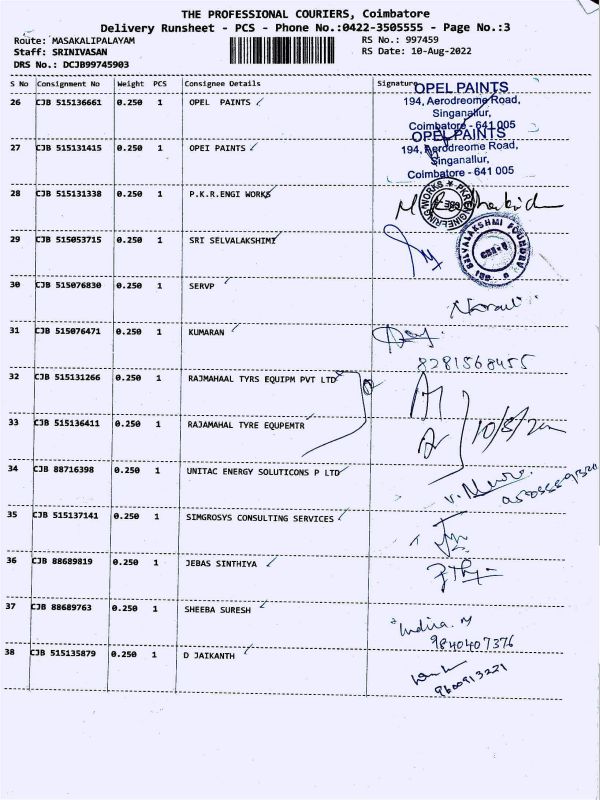 THE PROFESSIONAL COURIERS, Coimbatore
Delivery Runsheet - PCS - Phone No.:0422-3505555 - Page No.:3
Route: MASAKALIPALAYAM RS No.: 997459
Staff: SRINIVASAN RS Date: 10-Aug-2022
DRS No.: DCJB99745903
S No Consignment No Weight PCS Consignee Details Signature
26 CJB 515136661 0.250 1 OPEL PAINTS
OPEL PAINTS
194, Aerodreome Road,
Singanallur,
Coimbatore - 641 005
27 CJB 515131415 0.250 1 OPEI PAINTS
OPEL PAINTS
194, Aerodreome Road,
Singanallur,
Coimbatore - 641 005
28 CJB 515131338 0.250 1 P.K.R.ENGI WORKS
PKR ENGINEERING WORKS
29 CJB 515053715 0.250 1 SRI SELVALAKSHMI
SRI SELVALAKSHMI FOUNDRY
30 CJB 515076830 0.250 1 SERVP
31 CJB 515076471 0.250 1 KUMARAN
8281568455
32 CJB 515131266 0.250 1 RAJMAHAAL TYRS EQUIPM PVT LTD
33 CJB 515136411 0.250 1 RAJAMAHAL TYRE EQUPEMTR
10/8/22
34 CJB 88716398 0.250 1 UNITAC ENERGY SOLUTICONS P LTD
35 CJB 515137141 0.250 1 SIMGROSYS CONSULTING SERVICES
36 CJB 88689819 0.250 1 JEBAS SINTHIYA
37 CJB 88689763 0.250 1 SHEEBA SURESH
Indira. M
9840407376
38 CJB 515135879 0.250 1 D JAIKANTH
9600913221